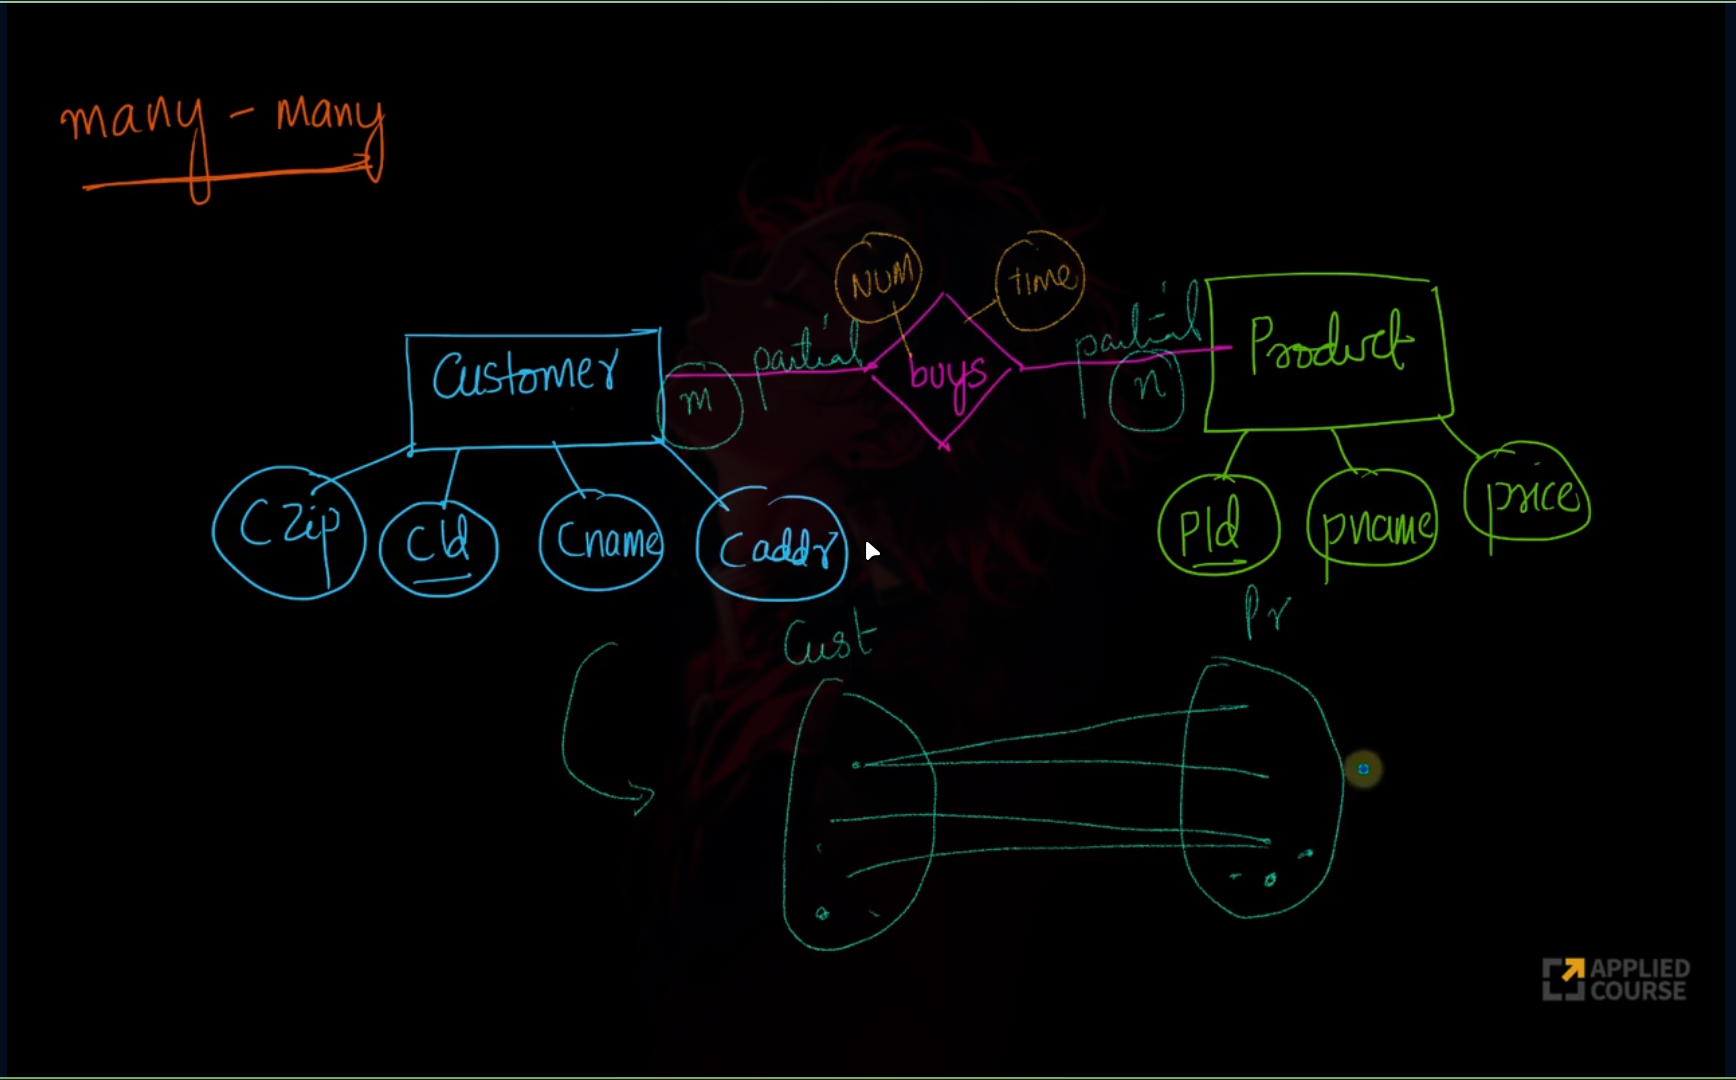 many - many
NUM
time
partial
partial
Customer
m
buys
n
Product
Czip
CId
Cname
Caddr
PId
pname
price
Cust
Pr
APPLIED
COURSE